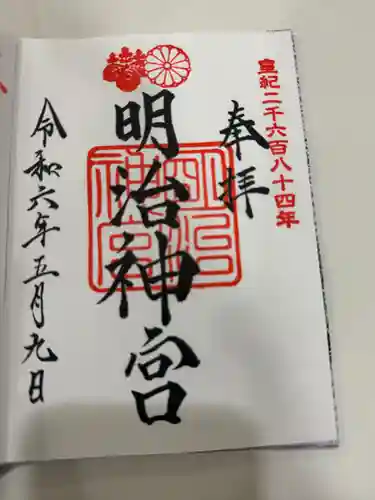 皇紀二千六百八十四年
奉拝
明治神宮
明治
神宮
令和六年五月九日